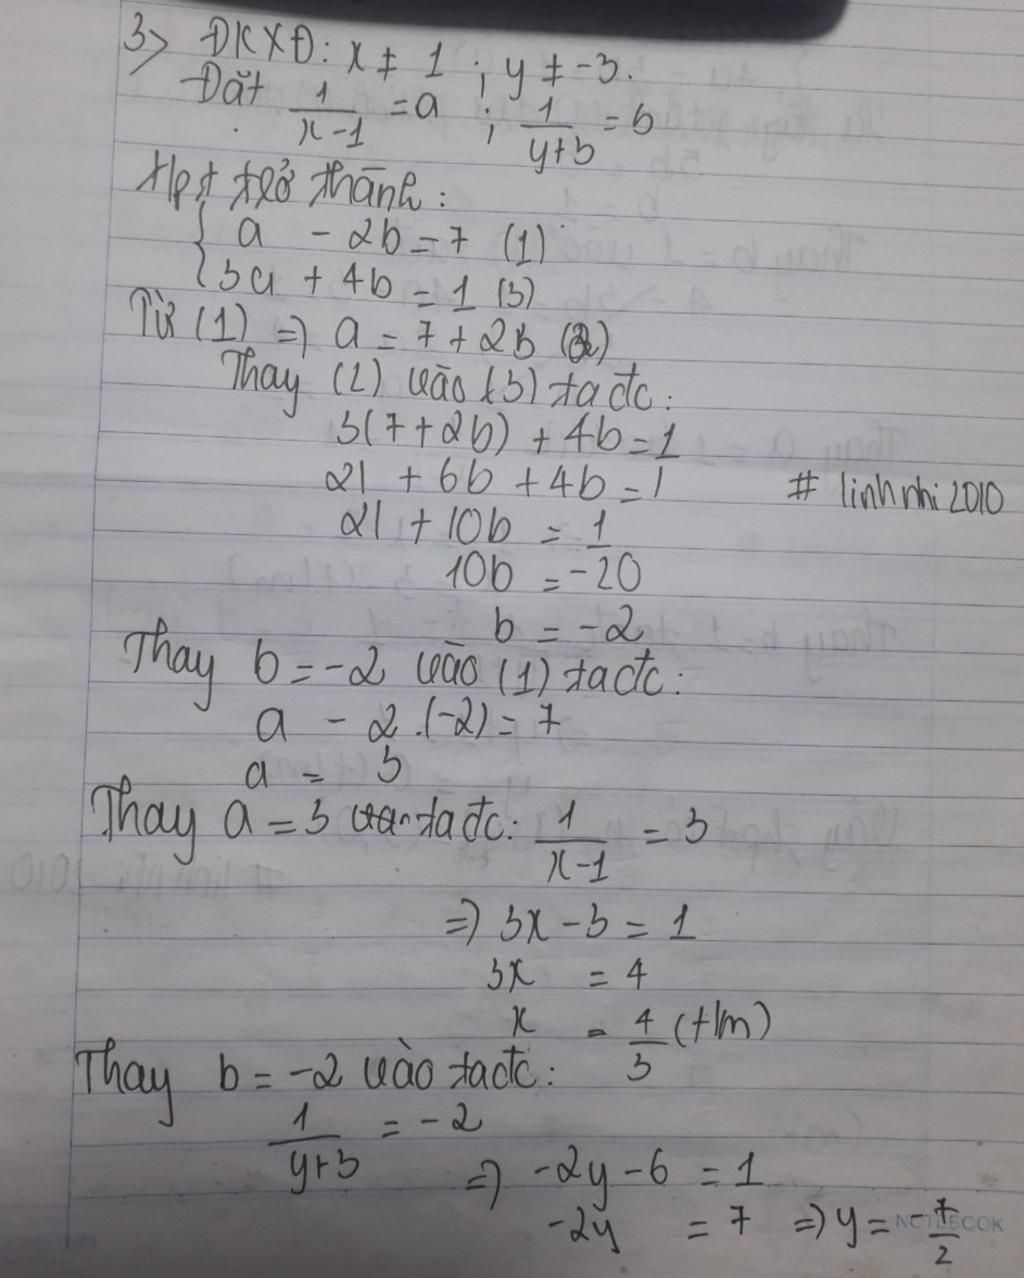 3> ĐKXĐ: x ≠ 1 ; y ≠ -3.
Đặt 1/(x-1) = a ; 1/(y+3) = b
Hpt trở thành:
{ a - 2b = 7 (1)
{ 3a + 4b = 1 (3)
Từ (1) => a = 7 + 2b (2)
Thay (2) vào (3) ta đc:
3(7 + 2b) + 4b = 1
21 + 6b + 4b = 1
# linhnhi2010
21 + 10b = 1
10b = -20
b = -2
Thay b = -2 vào (1) ta đc:
a - 2.(-2) = 7
a = 3
Thay a = 3 ta đc: 1/(x-1) = 3
=> 3x - 3 = 1
3x = 4
x = 4/3 (t/m)
Thay b = -2 vào ta đc:
1/(y+3) = -2
=> -2y - 6 = 1
-2y = 7 => y = -7/2
NOTEBOOK